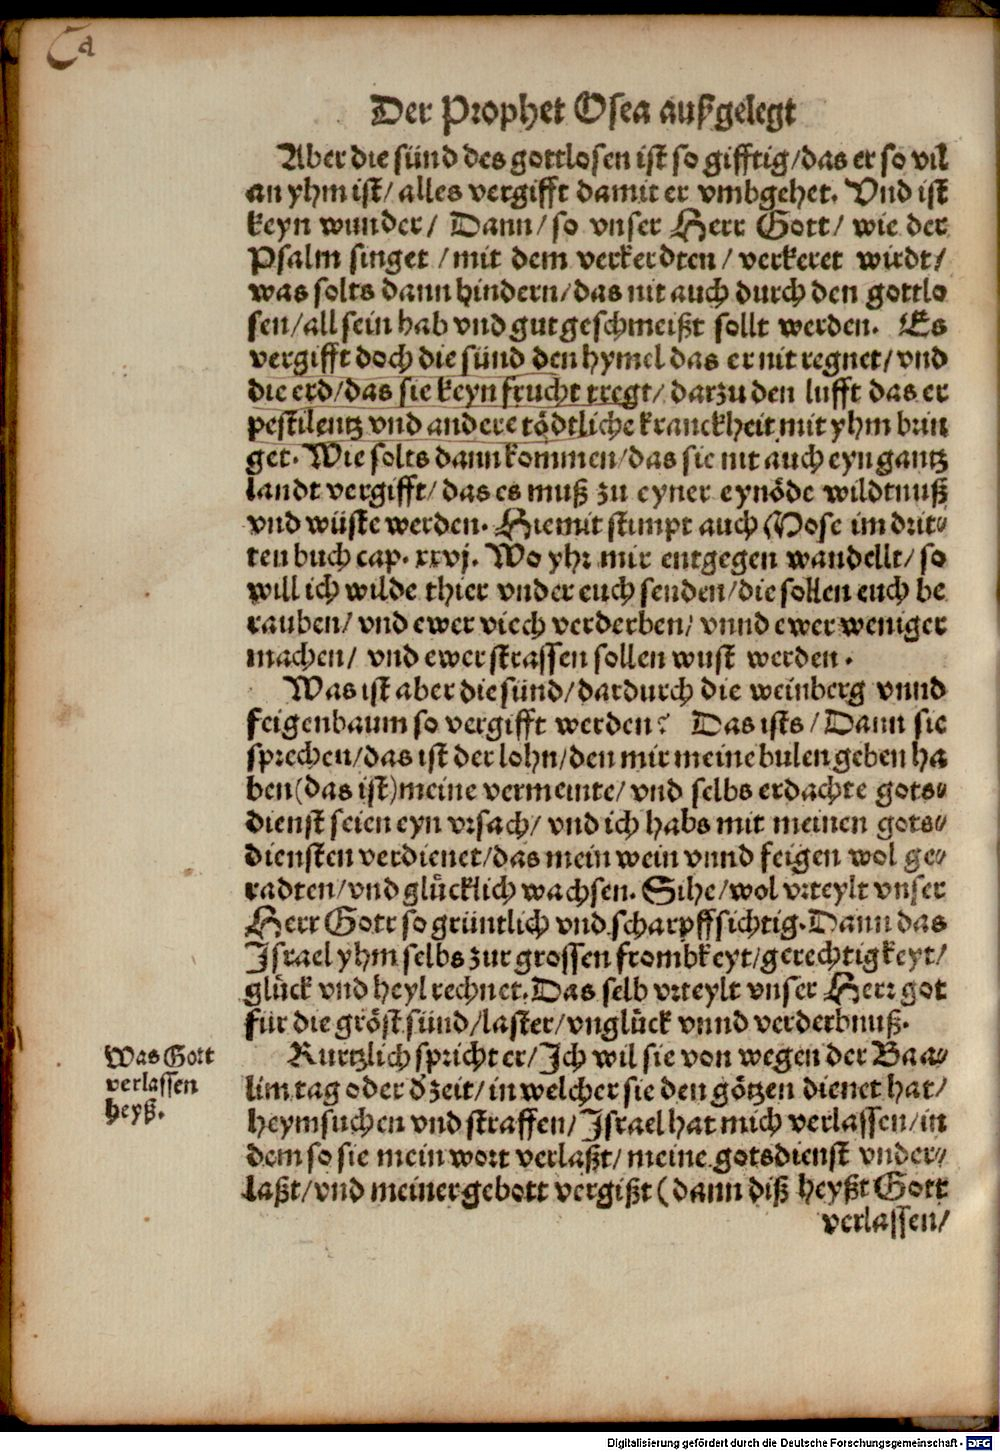 Ca
Der Prophet Osea außgelegt
Aber die sünd des gottlosen ist so gifftig/das er so vil
an yhm ist/ alles vergifft damit er vmbgehet. Vnd ist
keyn wunder/ Dann/so vnser Herr Gott/ wie der
Psalm singet /mit dem verkerdten/ verkeret wirdt/
was solts dann hindern/das nit auch durch den gottlo
sen/all sein hab vnd gut geschmeißt sollt werden. Es
vergifft doch die sünd den hymel das er nit regnet/vnd
die erd/das sie keyn frucht tregt/ darzu den lufft das er
pestilentz vnd andere tödtliche kranckheit mit yhm brin
get. Wie solts dann kommen/das sie nit auch eyn gantz
landt vergifft/ das es muß zu eyner eynöde wildtnuß
vnd wüste werden. Hiemit stimpt auch Mose im drit-
ten buch cap. xxvj. Wo yhr mir entgegen wandellt/ so
will ich wilde thier vnder euch senden/die sollen euch be
rauben/ vnd ewer viech verderben/ vnnd ewer weniger
machen/ vnd ewer strassen sollen wust werden.
Was ist aber die sünd/dardurch die weinberg vnnd
feigenbaum so vergifft werden? Das ists/Dann sie
sprechen/das ist der lohn/den mir meine bulen geben ha
ben(das ist)meine vermeinte/ vnd selbs erdachte gots-
dienst seien eyn vrsach/ vnd ich habs mit meinen gots-
diensten verdienet/das mein wein vnnd feigen wol ge-
radten/vnd glücklich wachsen. Sihe/wol vrteylt vnser
Herr Gott so grüntlich vnd scharpffsichtig. Dann das
Israel yhm selbs zur grossen frombkeyt/gerechtigkeyt/
glück vnd heyl rechnet. Das selb vrteylt vnser Herr got
für die gröst sünd/laster/vnglück vnnd verderbnuß.
Was Gott
verlassen
heyß.
Kurtzlich spricht er/Ich wil sie von wegen der Baa-
lim tag oder d̕ zeit/ in welcher sie den götzen dienet hat/
heymsuchen vnd straffen/ Israel hat mich verlassen/in
dem so sie mein wort verlaßt/ meine gotsdienst vnder-
laßt/vnd meiner gebott vergißt (dann diß heyßt Gott
verlassen/
Digitalisierung gefördert durch die Deutsche Forschungsgemeinschaft - DFG